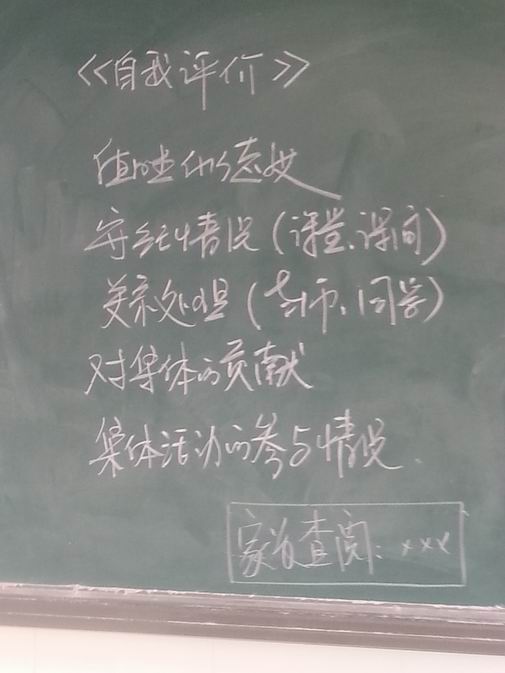 《自我评价》
态度
守纪情况（课堂、课间）
关系处理（老师、同学）
对集体的贡献
集体活动的参与情况.
家长查阅：×××